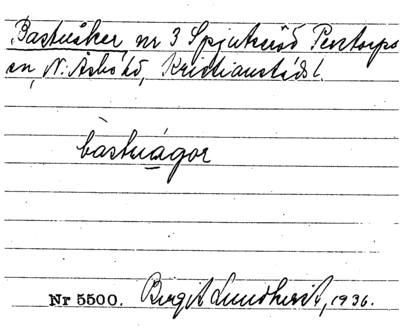 Bastuåker, nr 3 Spjutsröd Perstorps
sn, N. Åsbo hd, Kristianstads l.
bastuágor
Nr 5500. Birgit Lundkvist, 1936.